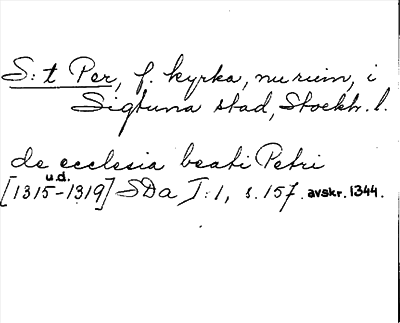 S:t Per, f. kyrka, nu ruin, i
Sigtuna stad, Stockh. l.
de ecclesia beati Petri
u.d.
[1315-1319] SDa I:1, s. 157. avskr. 1344.